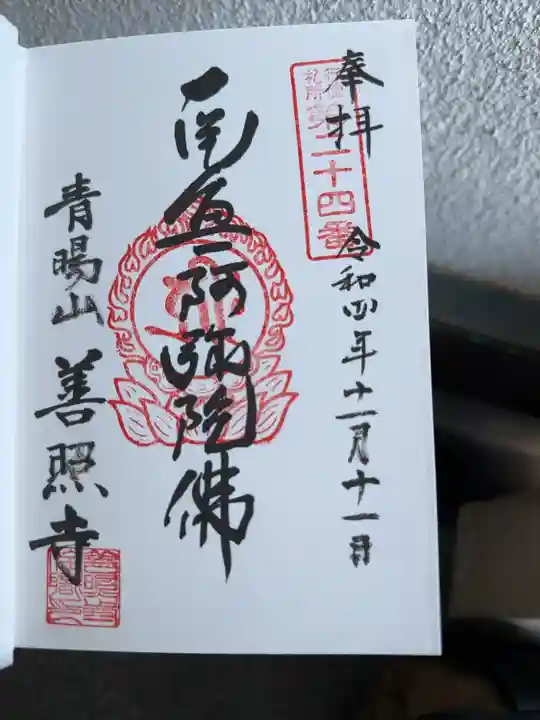 奉拝
札所
第二十四番
令和四年十一月十一日
南無阿弥陀佛
青陽山 善照寺